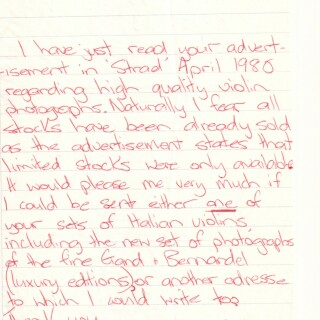 I have just read your advert-
-isement in 'Strad' April 1980
regarding high quality violin
photographs. Naturally I fear all
stocks have been already sold
as the advertisement states that
limited stocks were only available.
It would please me very much if
I could be sent either one of
your sets of Italian violins,
including the new set of photographs
of the fine Gand & Bernardel
(luxury editions) or another adresse
to which I could write too
Thank you